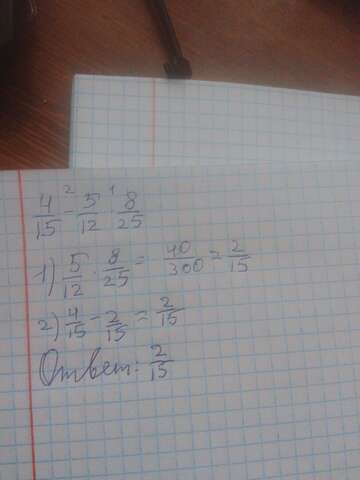 4/15 -² 5/12 ·¹ 8/25
1) 5/12 · 8/25 = 40/300 = 2/15
2) 4/15 - 2/15 = 2/15
Ответ: 2/15